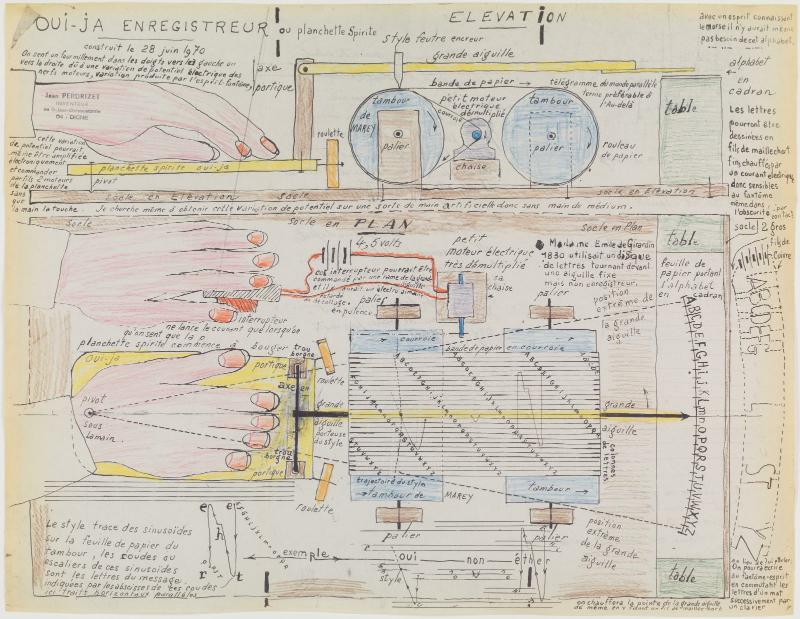 OUI-JA ENREGISTREUR
ou planchette Spirite
construit le 28 juin 1970
On sent un fourmillement dans les doigts vers la gauche ou
vers la droite dû à une variation de potentiel électrique des
nerfs moteurs, variation produite par l'esprit-fantôme,
Jean PERDRIZET
INVENTEUR
04 - DIGNE
cette variation
de potentiel pourrait
même être amplifiée
électroniquement
et commander
par fils 2 moteurs
de la planchette
sans
que
la main la touche.
Je cherche même à obtenir cette variation de potentiel sur une sorte de main artificielle donc sans main de médium.
planchette spirite oui-ja
pivot
socle en Elévation
socle
socle en Elévation
axe
portique
roulette
ELEVATION
style feutre encreur
grande aiguille
bande de papier
télégramme du monde parallèle
terme préférable à
l'Au-delà
tambour
de
MAREY
palier
courroie
petit moteur
électrique
démultiplié
chaise
tambour
palier
rouleau
de papier
table
avec un esprit connaissant
le morse il n'y aurait même
pas besoin de cet alphabet.
alphabet
en
cadran
Les lettres
pourront être
dessinées en
fils de maillechort
fins chauffés par
un courant électrique
donc sensibles
au fantôme
même dans
l'obscurité
par
contact
socle
2 gros
fils de
Cuivre
Socle
socle en PLAN
socle en Plan
4,5 volts
cet interrupteur pourrait être
commandé par une lame de la grande
aiguille
interrupteur
ne lance le courant que lorsqu'on
qu'on sent que la p
planchette spirite commence à bouger
petit
moteur électrique
très démultiplié
sa
chaise
Madame Emile de Girardin
1830 utilisait un disque
de lettres tournant devant
une aiguille fixe
mais non enregistreur.
position
extrême de
la grande
aiguille
table
feuille de
papier portant
l'alphabet
en cadran
palier
palier
courroie
bande de papier en courroie
Oui-ja
trou
borgne
portique
roulette
axe en
pivot
sous
lamain.
grande
aiguille
porteuse
du style
trou
borgne
portique
roulette
grande
aiguille
colonnes
de lettres
ABCDEFGHIJKLMNOPQRSTUVWXYZ
trajectoire du stylin
tambour de MAREY
tambour
palier
palier
position
extrême
de la grande
aiguille
table
Le style trace des sinusoïdes
sur la feuille de papier du
tambour, les coudes ou
escaliers de ces sinusoïdes
sont les lettres du message
indiquées par les abscisses de ces coudes
ici traits horizontaux parallèles
e
e
h
r
t
exemple
oui
non
éther
style
on chauffera la pointe de la grande aiguille